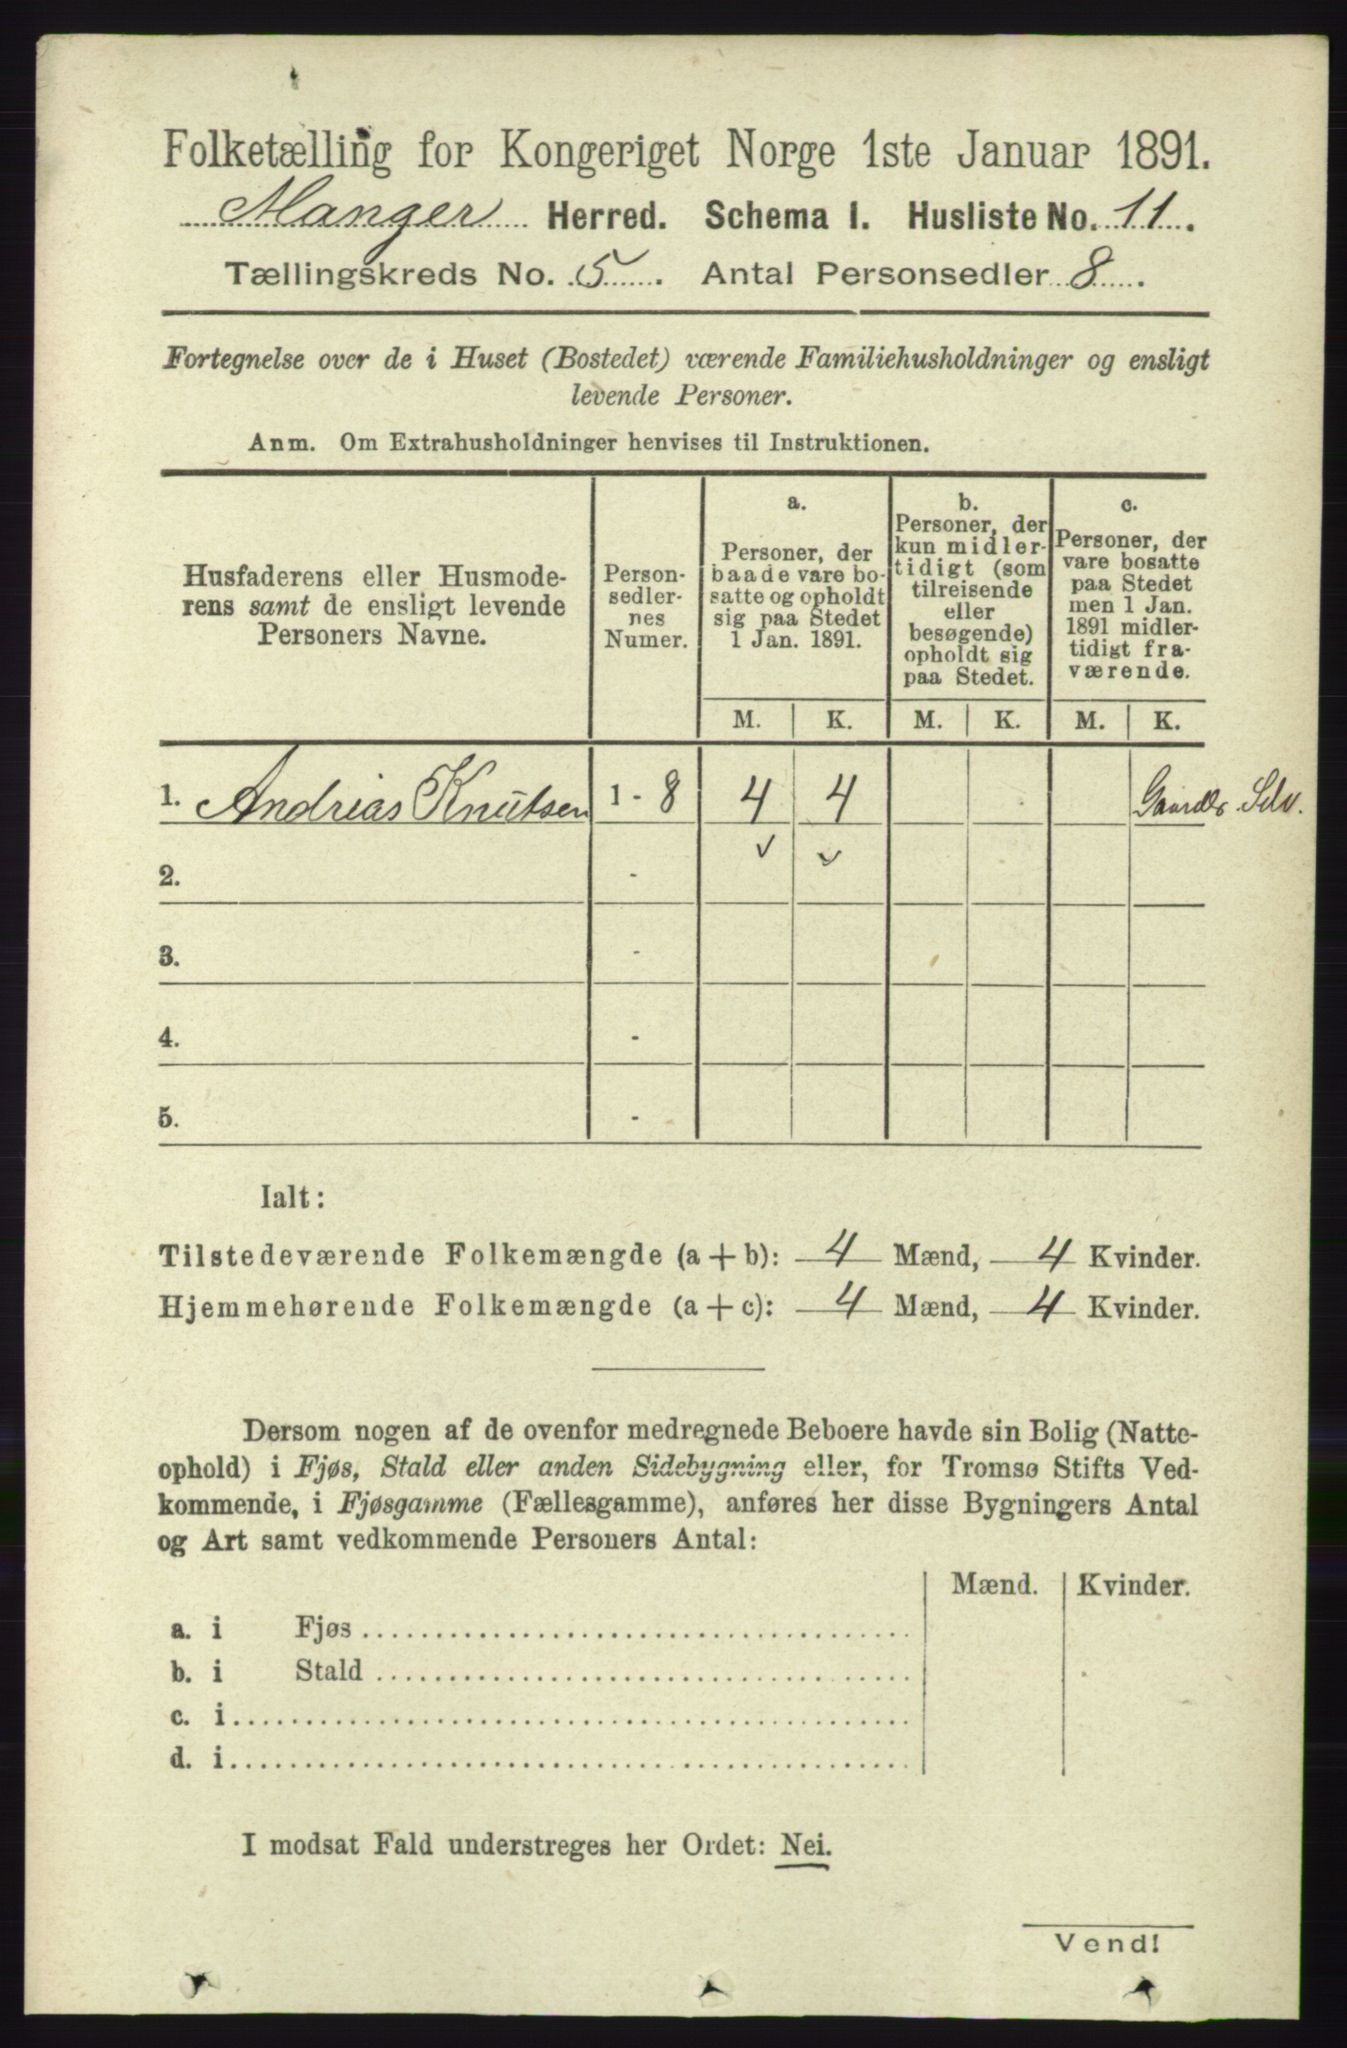 Folketælling for Kongeriget Norge 1ste Januar 1891.
Manger Herred. Schema I. Husliste No. 11.
Tællingskreds No. 5. Antal Personsedler 8.
Fortegnelse over de i Huset (Bostedet) værende Familiehusholdninger og ensligt
levende Personer.
Anm. Om Extrahusholdninger henvises til Instruktionen.
Husfaderens eller Husmode-
rens samt de ensligt levende
Personers Navne.
Person-
sedler-
nes
Numer.
a.
Personer, der
baade vare bo-
satte og opholdt
sig paa Stedet
1 Jan. 1891.
b.
Personer, der
kun midler-
tidigt (som
tilreisende
eller
besøgende)
opholdt sig
paa Stedet.
c.
Personer, der
vare bosatte
paa Stedet
men 1 Jan.
1891 midler-
tidigt fra-
værende.
M. K. M. K. M. K.
1. Andrias Knutsen 1 - 8 4 4 Gaardbr Selv.
✓ ✓
2. -
3. -
4. -
5. -
Ialt:
Tilstedeværende Folkemængde (a + b): 4 Mænd, 4 Kvinder.
Hjemmehørende Folkemængde (a + c): 4 Mænd, 4 Kvinder.
Dersom nogen af de ovenfor medregnede Beboere havde sin Bolig (Natte-
ophold) i Fjøs, Stald eller anden Sidebygning eller, for Tromsø Stifts Ved-
kommende, i Fjøsgamme (Fællesgamme), anføres her disse Bygningers Antal
og Art samt vedkommende Personers Antal:
Mænd. Kvinder.
a. i Fjøs
b. i Stald
c. i
d. i
I modsat Fald understreges her Ordet: Nei.
Vend!